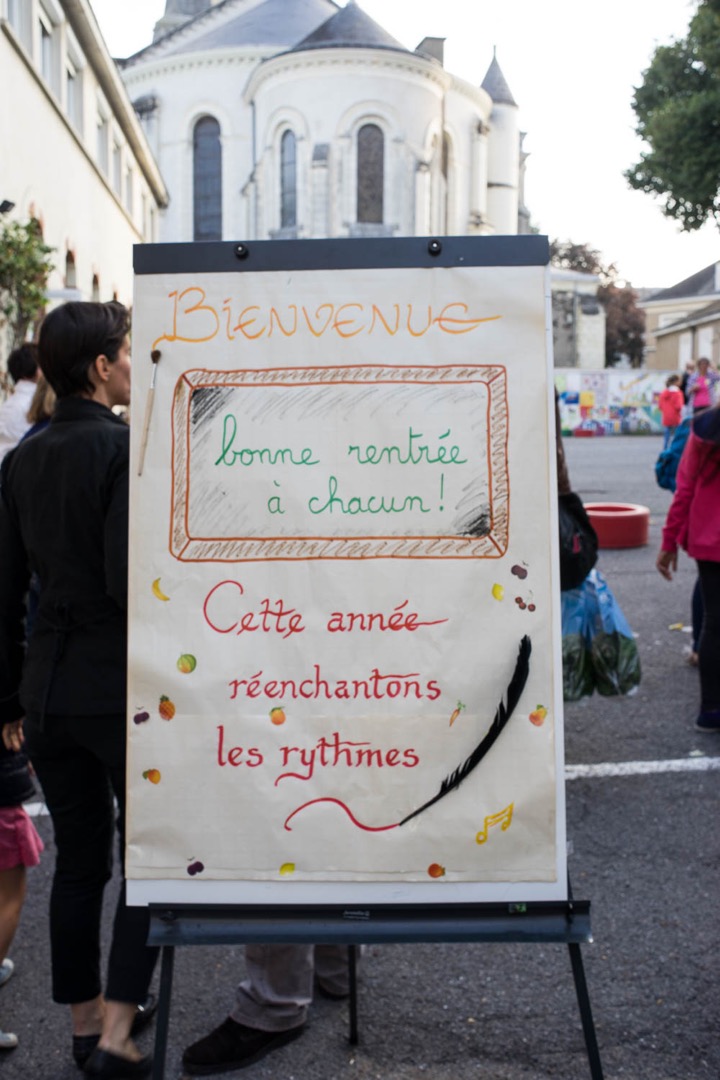 BIENVENUE
bonne rentrée
à chacun !
Cette année
réenchantons
les rythmes